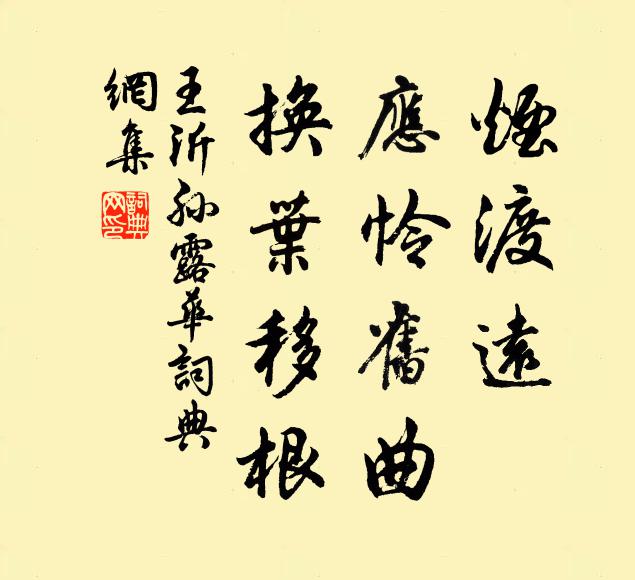 煙渡遠
應怜舊曲
換葉移根
王沂孫露華詞典
網集
詞典
网印